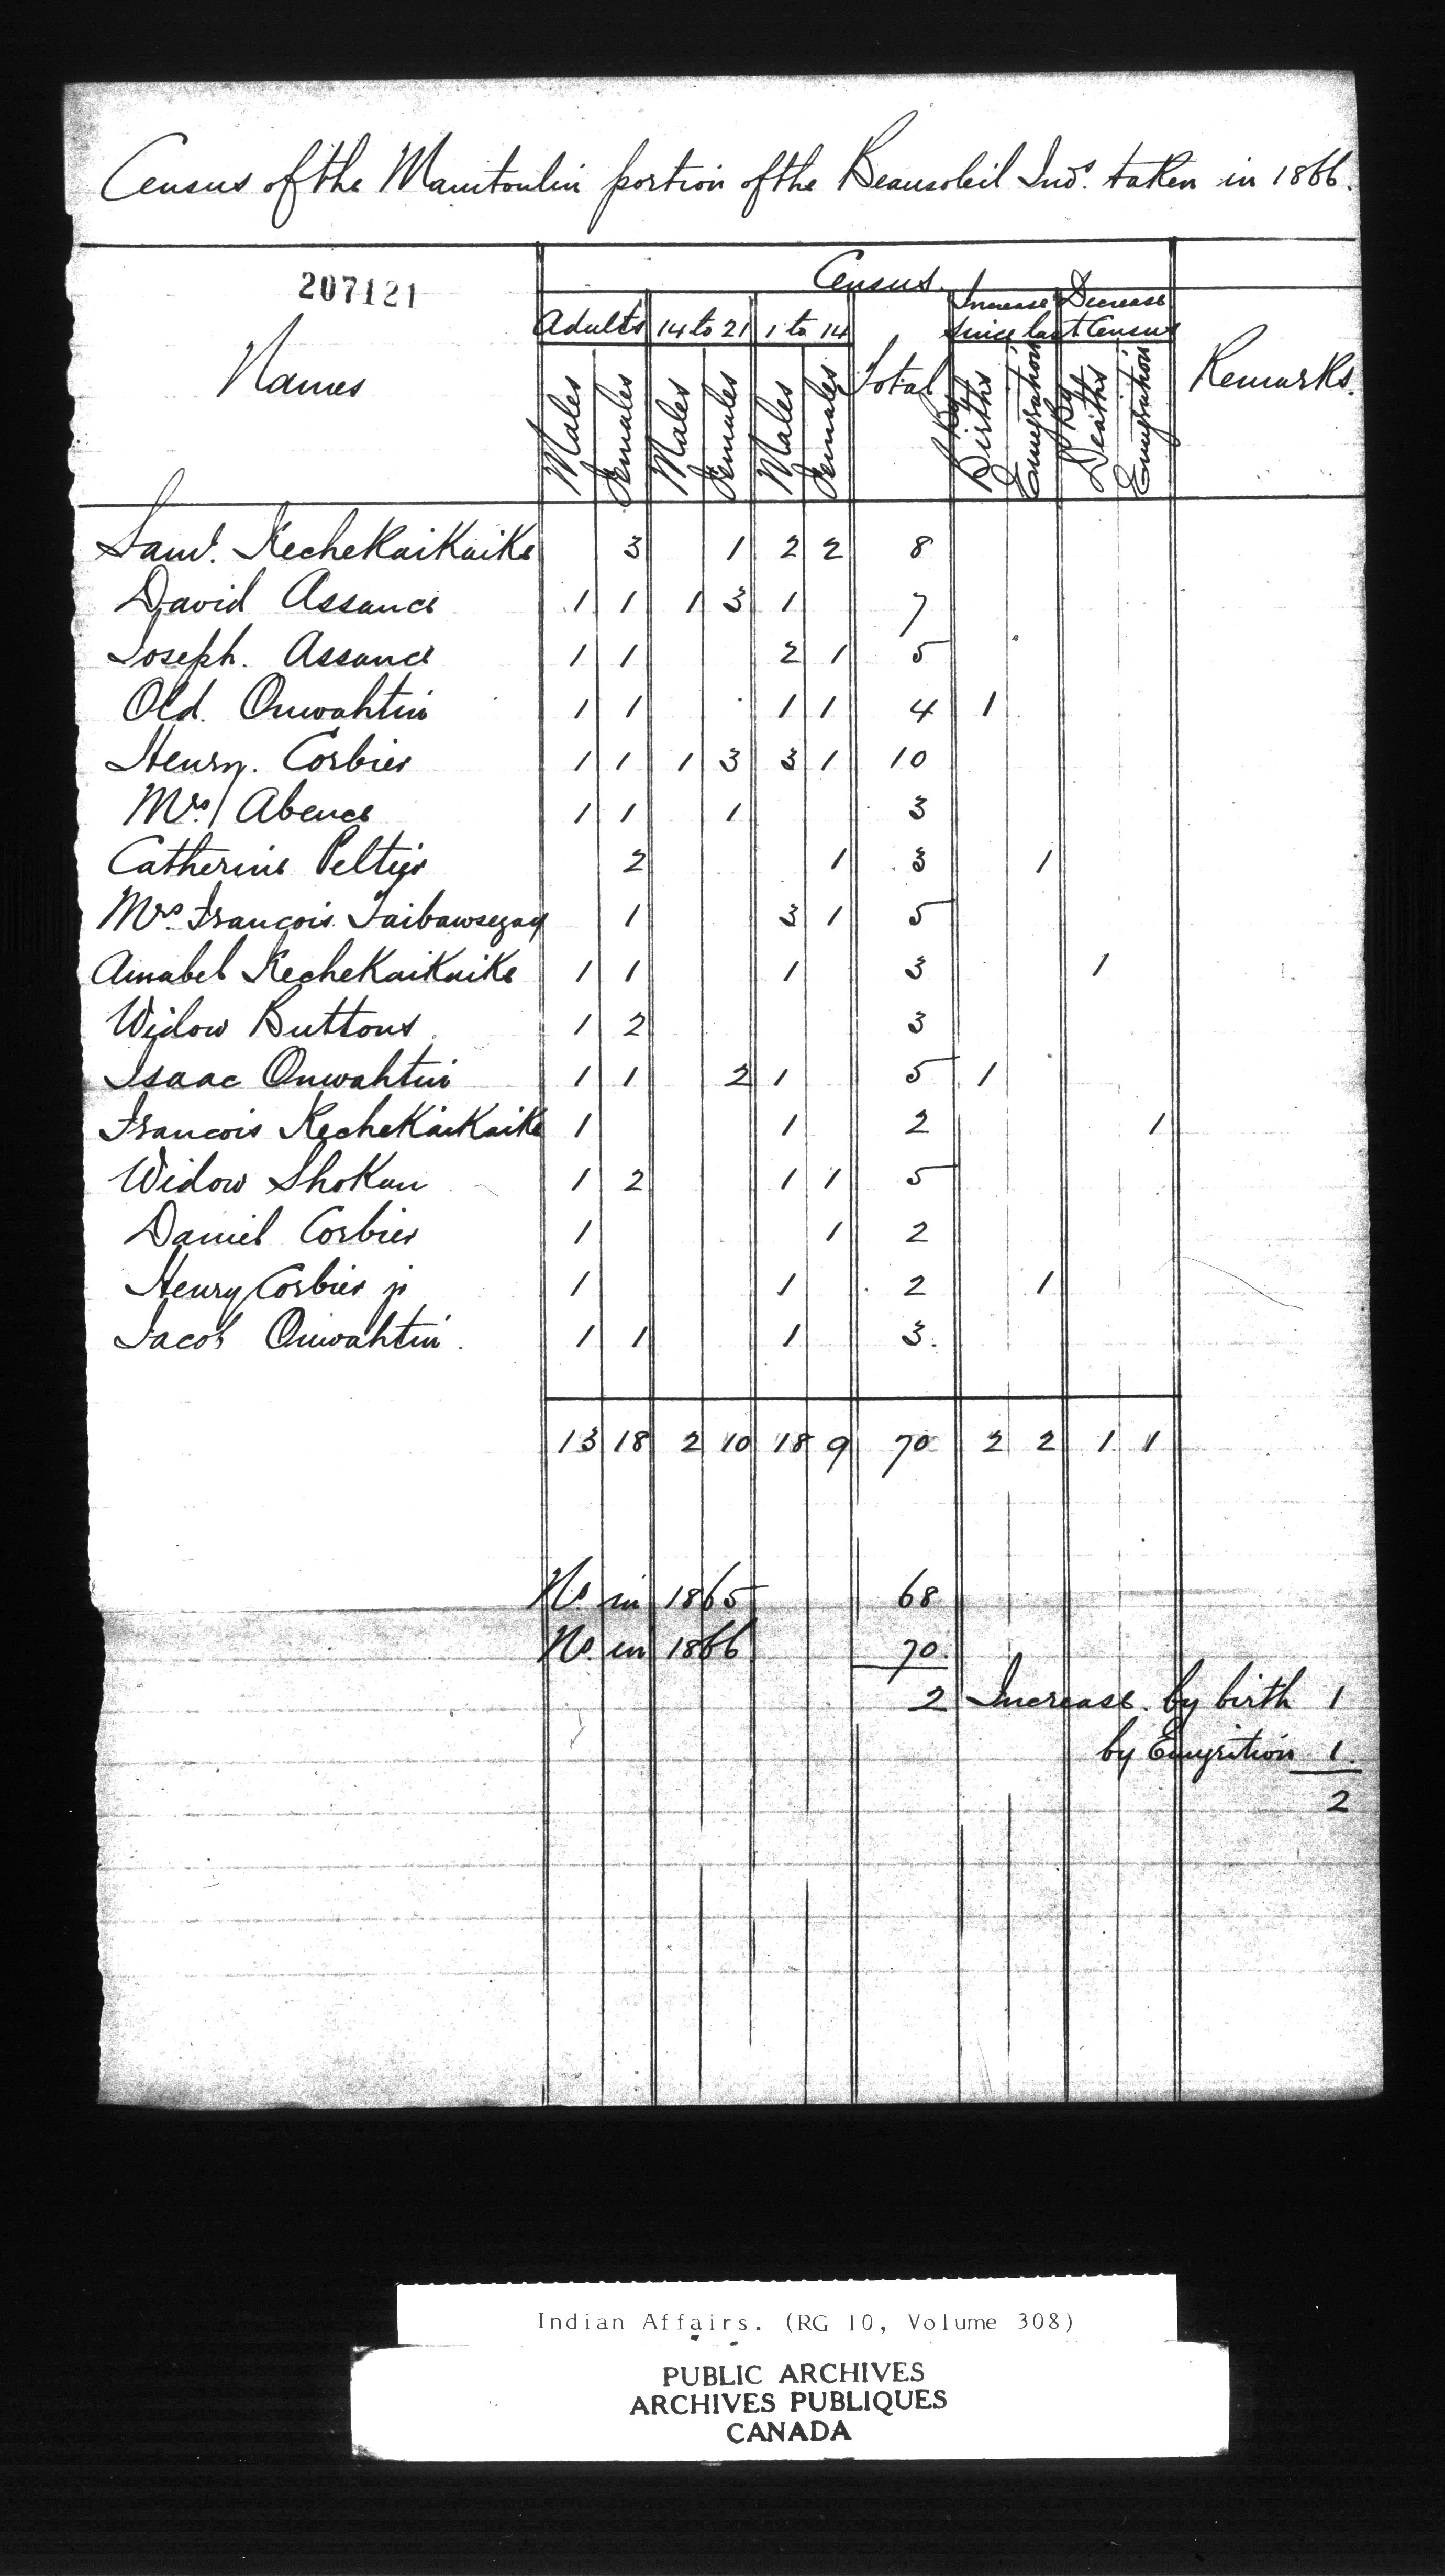 Census of the Manitoulin portion of the Beausoleil Inds. taken in 1866.
207121
Census.
Names
Adults 14 to 21 1 to 14 Total Increase Decrease Remarks.
since last Census
Males Females Males Females Males Females By Births Emigration By Deaths Emigration
Saml. KecheKaiKaike 3 1 2 2 8
David Assance 1 1 1 3 1 7
Joseph. Assance 1 1 2 1 5
Old. Onwahtin 1 1 1 1 4 1
Henry. Corbier 1 1 1 3 3 1 10
Mrs. Abence 1 1 1 3
Catherine Peltier 2 1 3 1
Mrs. Francois Taibawsegay 1 3 1 5
Amabel KecheKaiKaike 1 1 1 3 1
Widow Buttons 1 2 3
Isaac Onwahtin 1 1 2 1 5 1
Francois KecheKaiKaike 1 1 2 1
Widow ShoKan 1 2 1 1 5
Daniel Corbier 1 1 2
Henry Corbier jr 1 1 2 1
Jacob Onwahtin. 1 1 1 3.
13 18 2 10 18 9 70 2 2 1 1
No. in 1865 68
No. in 1866 70.
2 Increase by birth 1
by Emigrition 1.
2
Indian Affairs. (RG 10, Volume 308)
PUBLIC ARCHIVES
ARCHIVES PUBLIQUES
CANADA